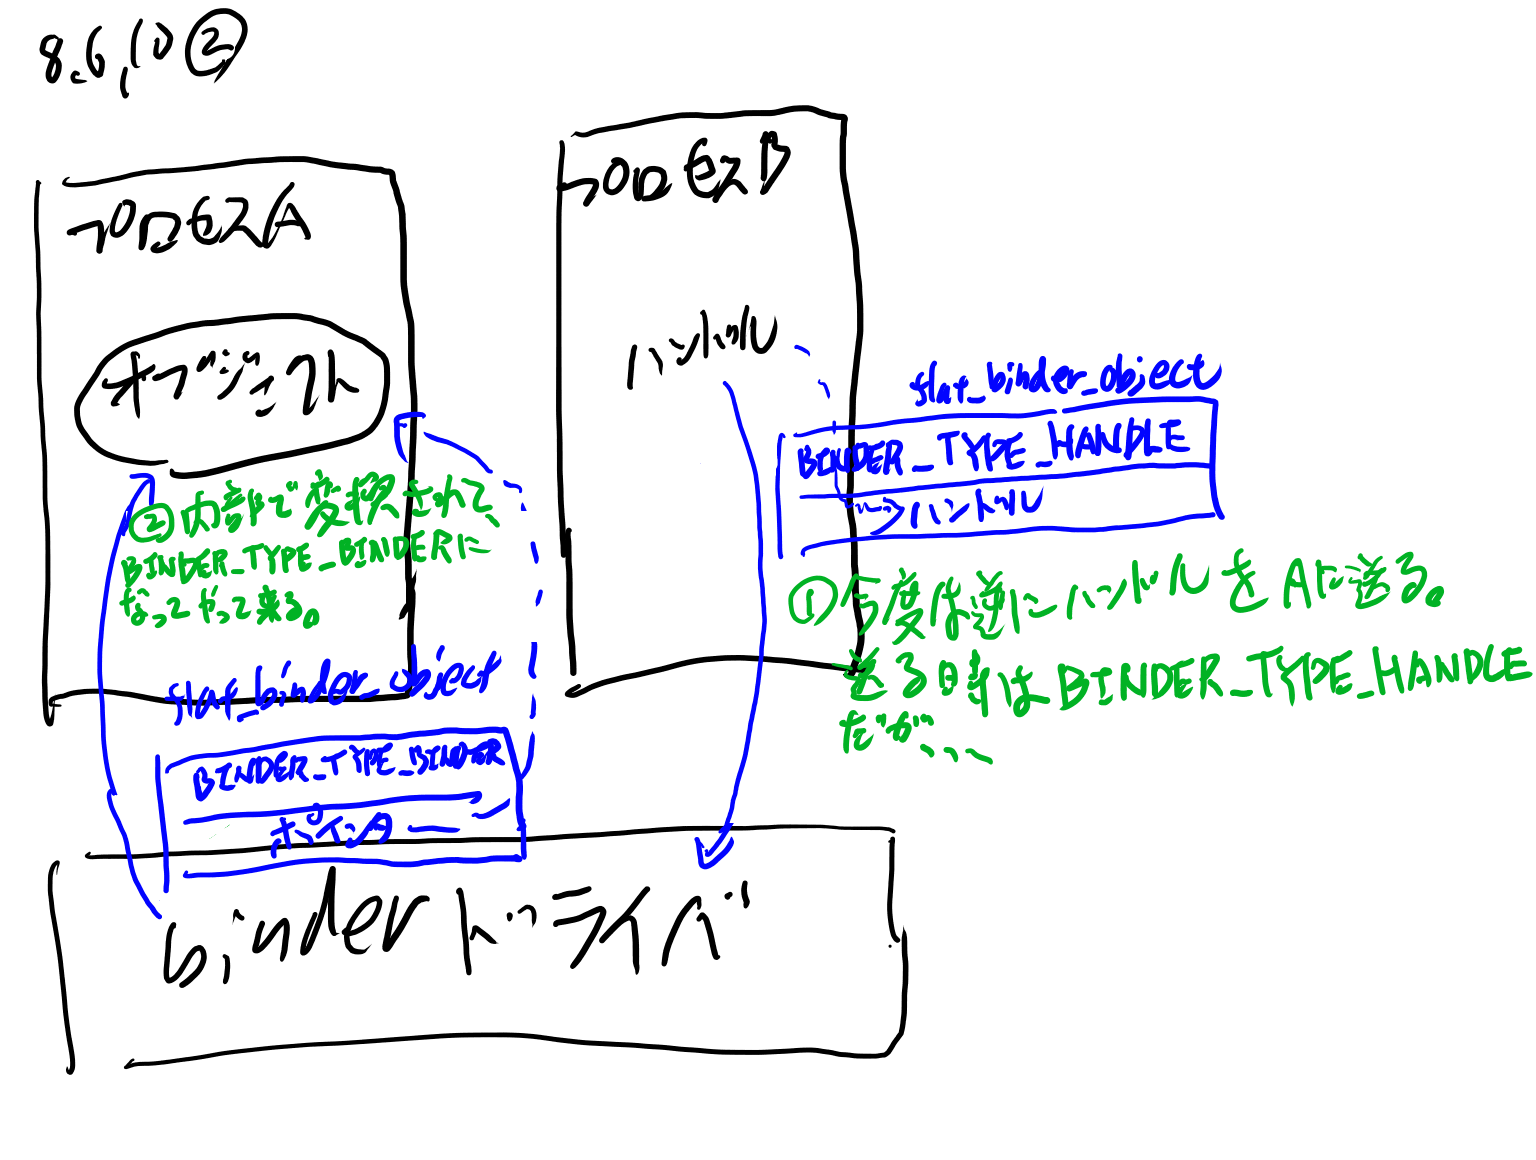 8.6.10 ②
プロセスA
オブジェクト
②内部で変換されて、
BINDER_TYPE_BINDERに
なってやって来る。
flat_binder_object
BINDER_TYPE_BINDER
ポインタ
プロセスB
ハンドル
flat_binder_object
BINDER_TYPE_HANDLE
ハンドル
①今度は逆にハンドルをAに送る。
送る時はBINDER_TYPE_HANDLE
だが、、、
binderドライバ